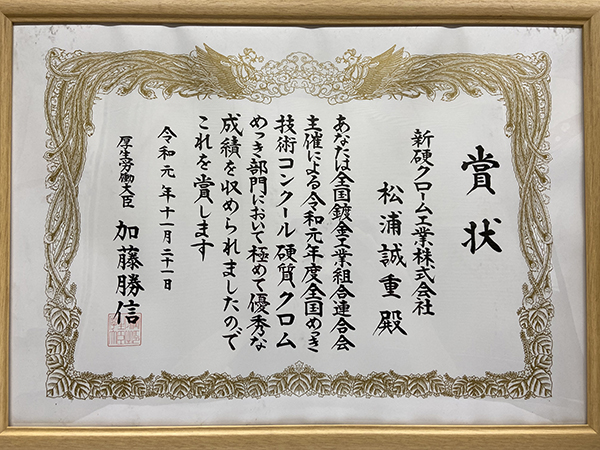 賞状
新硬クローム工業株式会社
松浦誠重殿
あなたは全国鍍金工業組合連合会
主催による令和元年度全国めっき
技術コンクール硬質クロム
めっき部門において極めて優秀な
成績を収められましたので
これを賞します
令和元年十一月二十一日
厚生労働大臣 加藤勝信